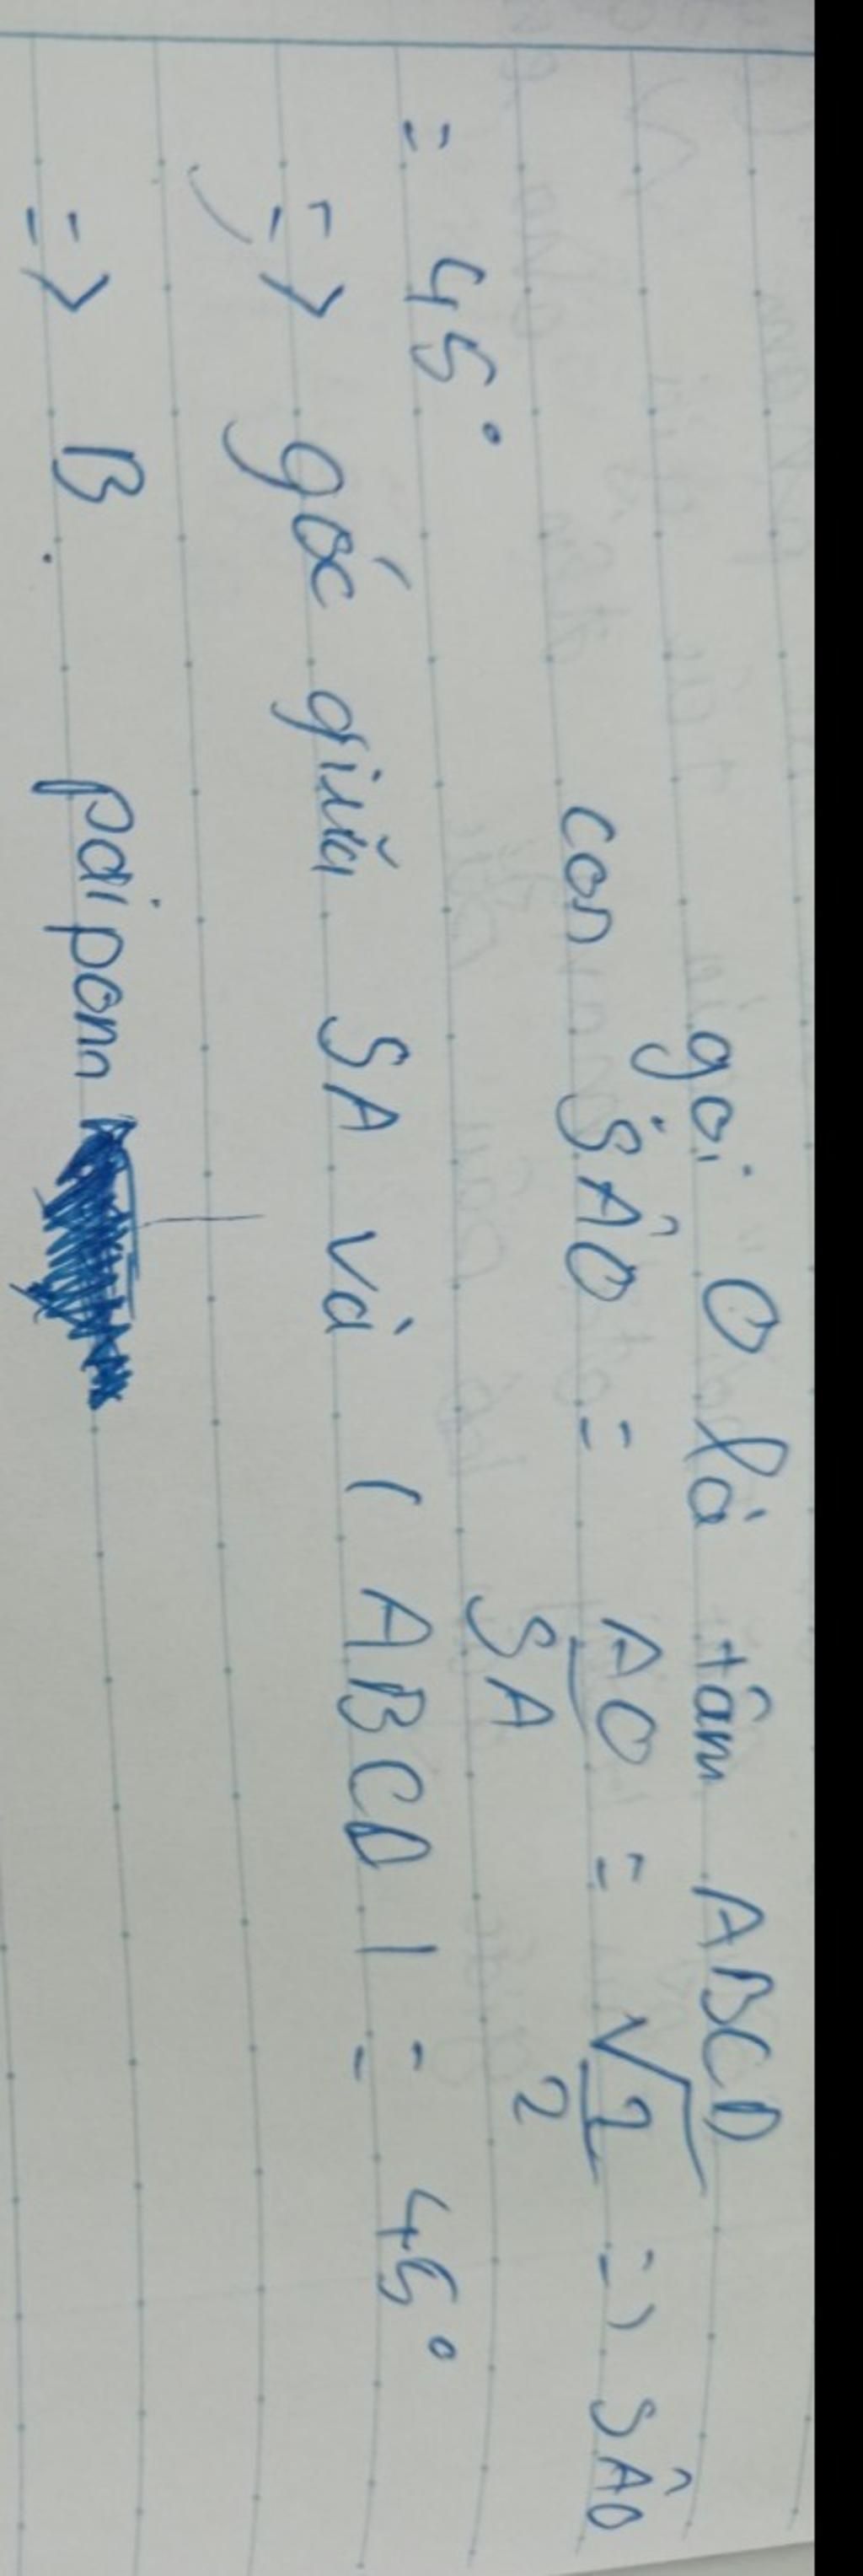 gọi O là tâm ABCD
con SÂO = AO/SA = √2/2 => SÂO
= 45°
=> góc giữa SA và (ABCD) = 45°
=> B. paipomn